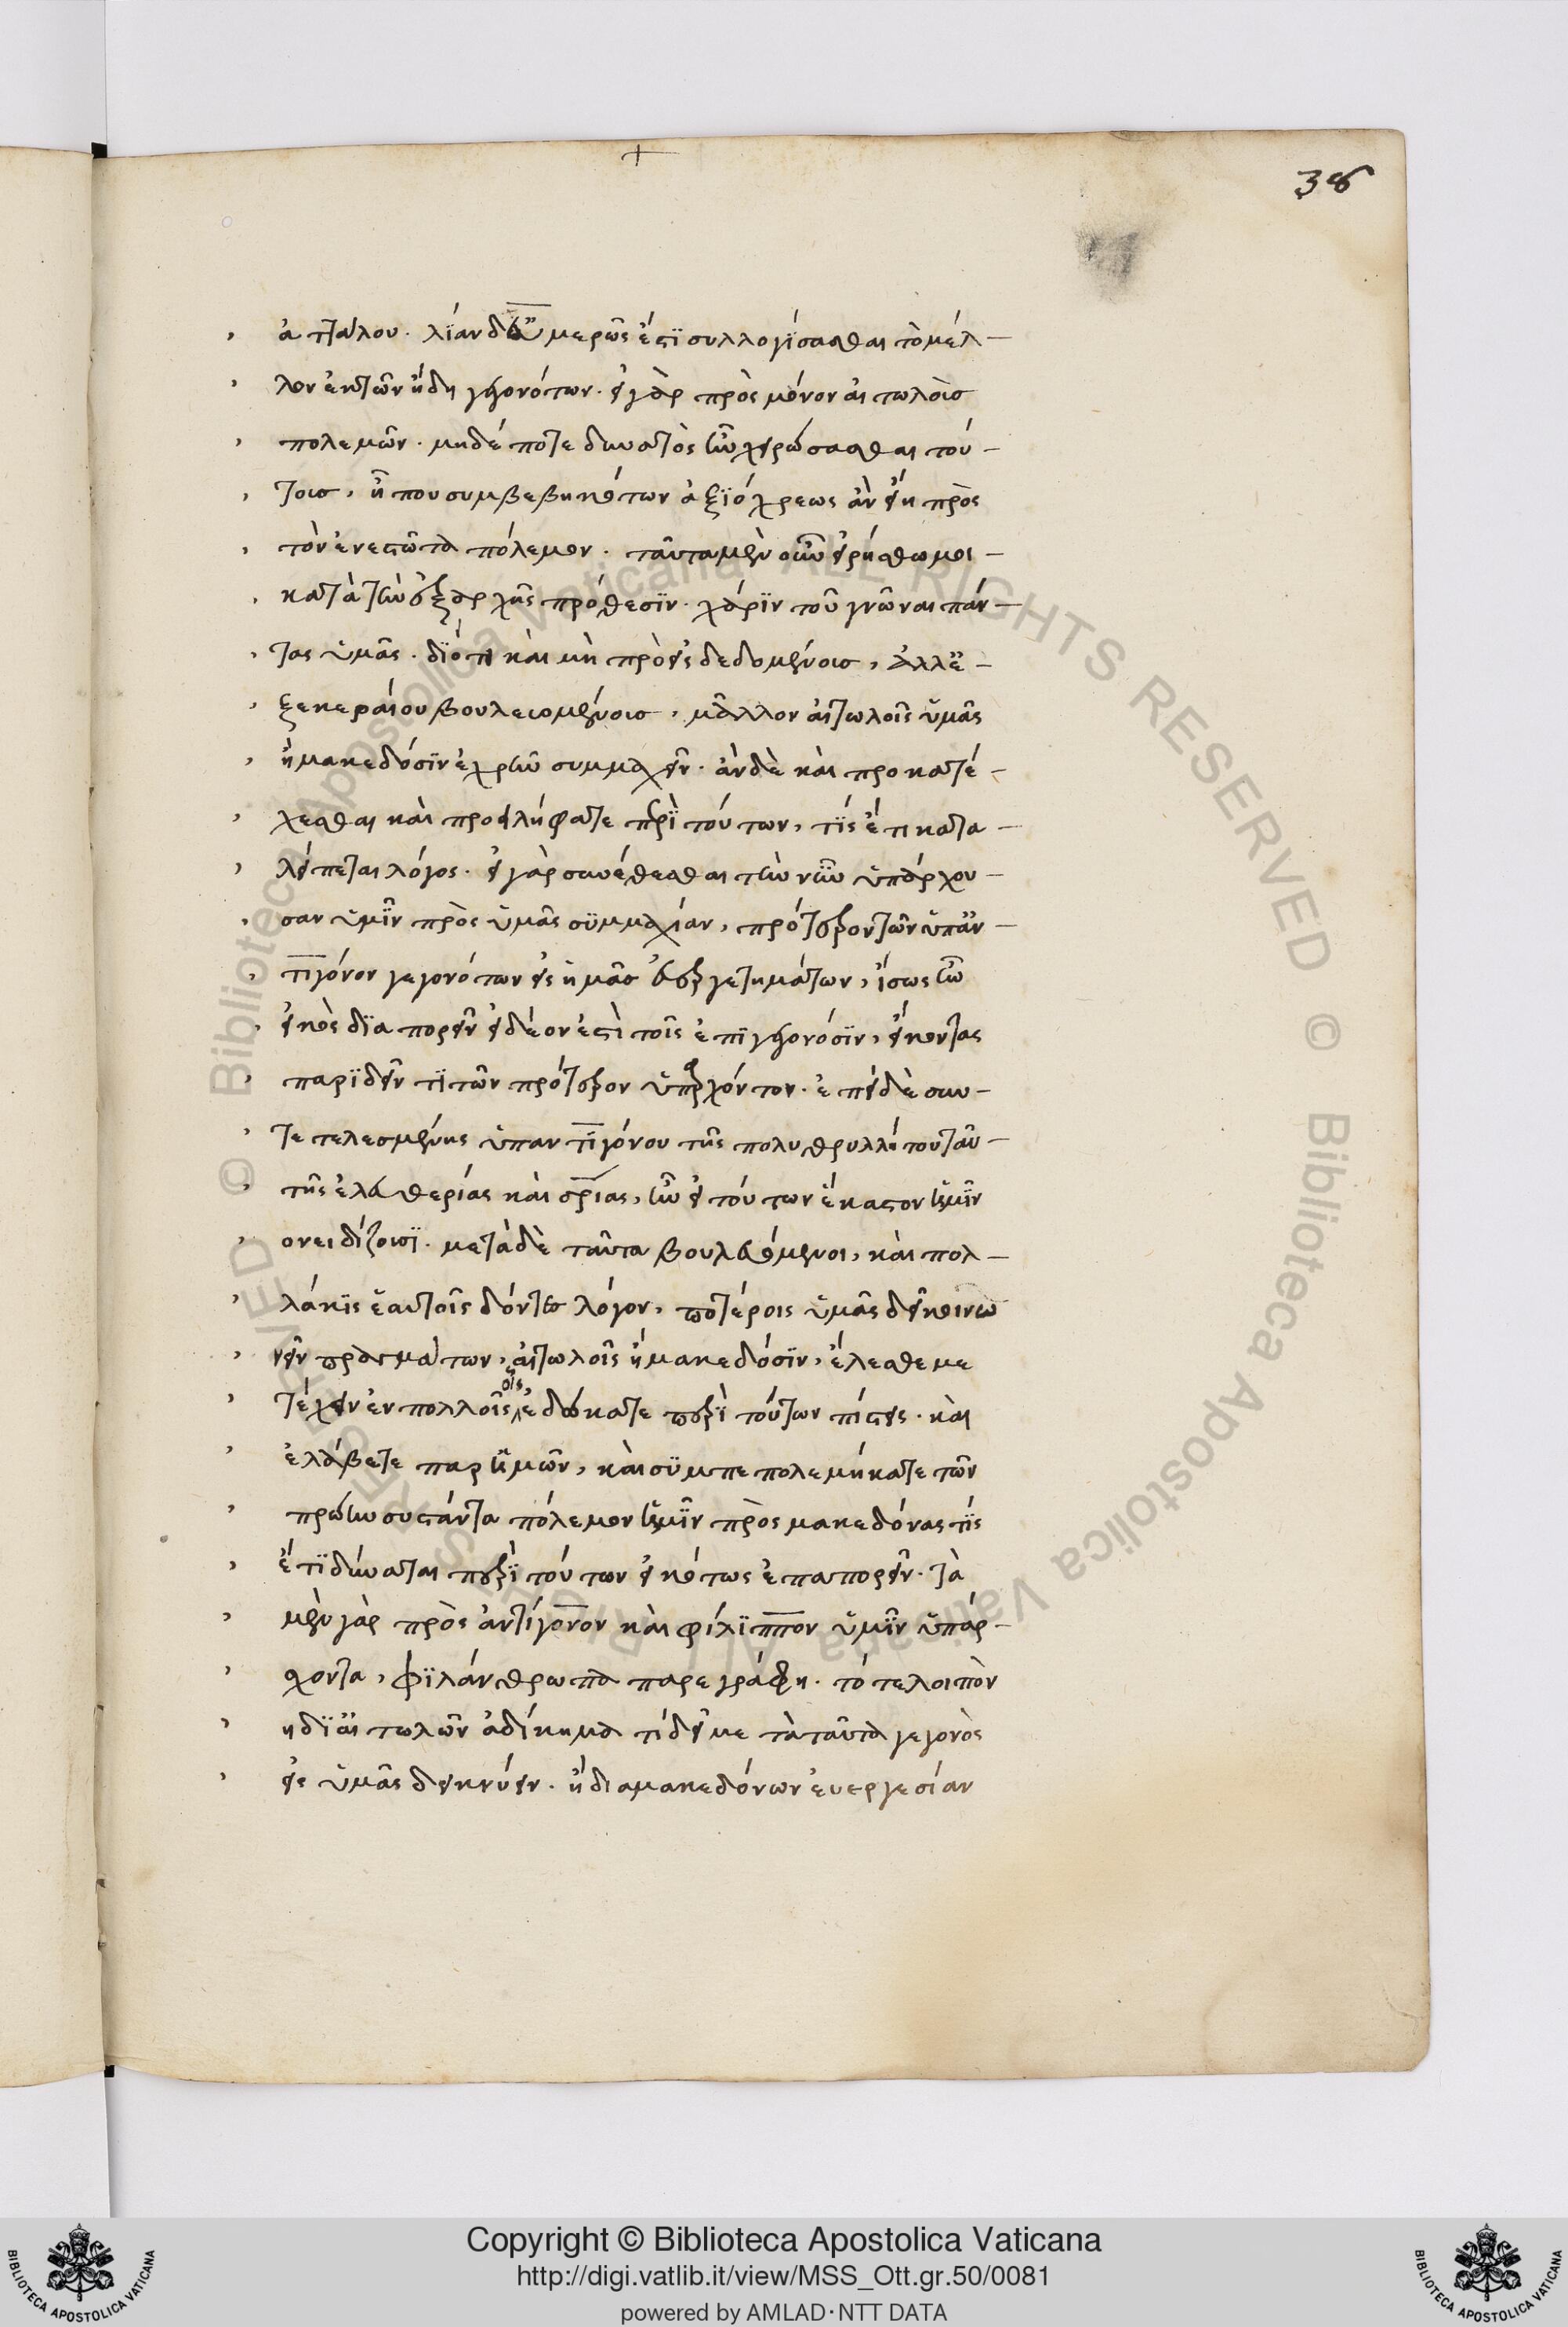 38
ἀττάλου. λίαν δ' εὐμερῶς ἐστὶ συλλογίσασθαι τὸ μέλ-
λον ἐκ τῶν ἤδη γεγονότων. εἰ γὰρ πρὸς μόνον αἰτωλοῖσ
πολεμῶν. μηδέποτε δυνατὸς ἦν χειρώσασθαι τού-
τοισ, ἦπου συμβεβηκότων ἀξιόχρεως ἂν εἴη πρὸς
τὸν ἐνεστῶτα πόλεμον. ταῦτα μὲν οὖν εἰρήσθω μοι
κατὰ τὴν ἐξαρχῆς πρόθεσιν. χάριν τοῦ γνῶναι πάν-
τας ὑμᾶς. διότι καὶ μὴ πρὸς δεδομένοισ, ἀλλ' ἐ-
ξ ἀκεραίου βουλευομένοισ, μᾶλλον αἰτωλοῖς ὑμᾶς
ἢ μακεδόσιν ἐχρῆν συμμαχεῖν. ἂν δὲ καὶ προκατέ-
χεσθαι καὶ προειλήφατε περὶ τούτων, τίς ἔτι κατα-
λείπεται λόγος. εἰ γὰρ συνέθεσθαι τὴν νῦν ὑπάρχου-
σαν ὑμῖν πρὸς ὑμᾶς συμμαχίαν, πρότερον τῶν ὑπ' ἀν-
τιγόνον γεγονότων εἰς ἡμᾶσ εὐεργετημάτων, ἴσως ἦν
εἰκὸς διαπορεῖν εἰ δέον ἐστὶ τοῖς ἐπιγεγονόσιν, εἴκοντας
παριδεῖν τι τῶν πρότερον ὑπαρχόντον. ἐπεὶ δὲ συν-
τετελεσμένης ὑπ' ἀντιγόνου τῆς πολυθρυλλήτου ταύ-
της ἐλευθερίας καὶ σωτηρίας, ἣν εἰ τούτων ἕκαστον ὑμῖν
ονειδίζουσι. μετὰ δὲ ταῦτα βουλευόμενοι, καὶ πολ-
λάκις ἑαυτοῖς δόντες λόγον, ποτέροις ὑμᾶς δεῖ κοινω
νεῖν πραγμάτων, αἰτωλοῖς ἢ μακεδόσιν, ἕλεσθε με
τέχειν ἐν πολλοῖς οἷς ἐδώκατε περὶ τούτων πίστεις. καὶ
ἐλάβετε παρ' ἡμῶν, καὶ συμπεπολεμήκατε τῶν
πρώην συστάντα πόλεμον ἡμῖν πρὸς μακεδόνας τίς
ἔτι δύναται περὶ τούτων εἰκότως ἐπαπορεῖν. τὰ
μὲν γὰρ πρὸς ἀντίγονον καὶ φίλιππον ὑμῖν ὑπάρ-
χοντα, φιλάνθρωπα παρεγράφη. τό τε λοιπὸν
ἢ δι' αἰτωλῶν ἀδίκημα τι δεῖ με τὰ ταῦτα γεγονὸς
εἰς ὑμᾶς δεικνύειν. ἢ δια μακεδόνων ἐυεργεσίαν
© Biblioteca Apostolica Vaticana ALL RIGHTS RESERVED
Copyright © Biblioteca Apostolica Vaticana
http://digi.vatlib.it/view/MSS_Ott.gr.50/0081
powered by AMLAD·NTT DATA
BIBLIOTECA APOSTOLICA VATICANA
BIBLIOTECA APOSTOLICA VATICANA